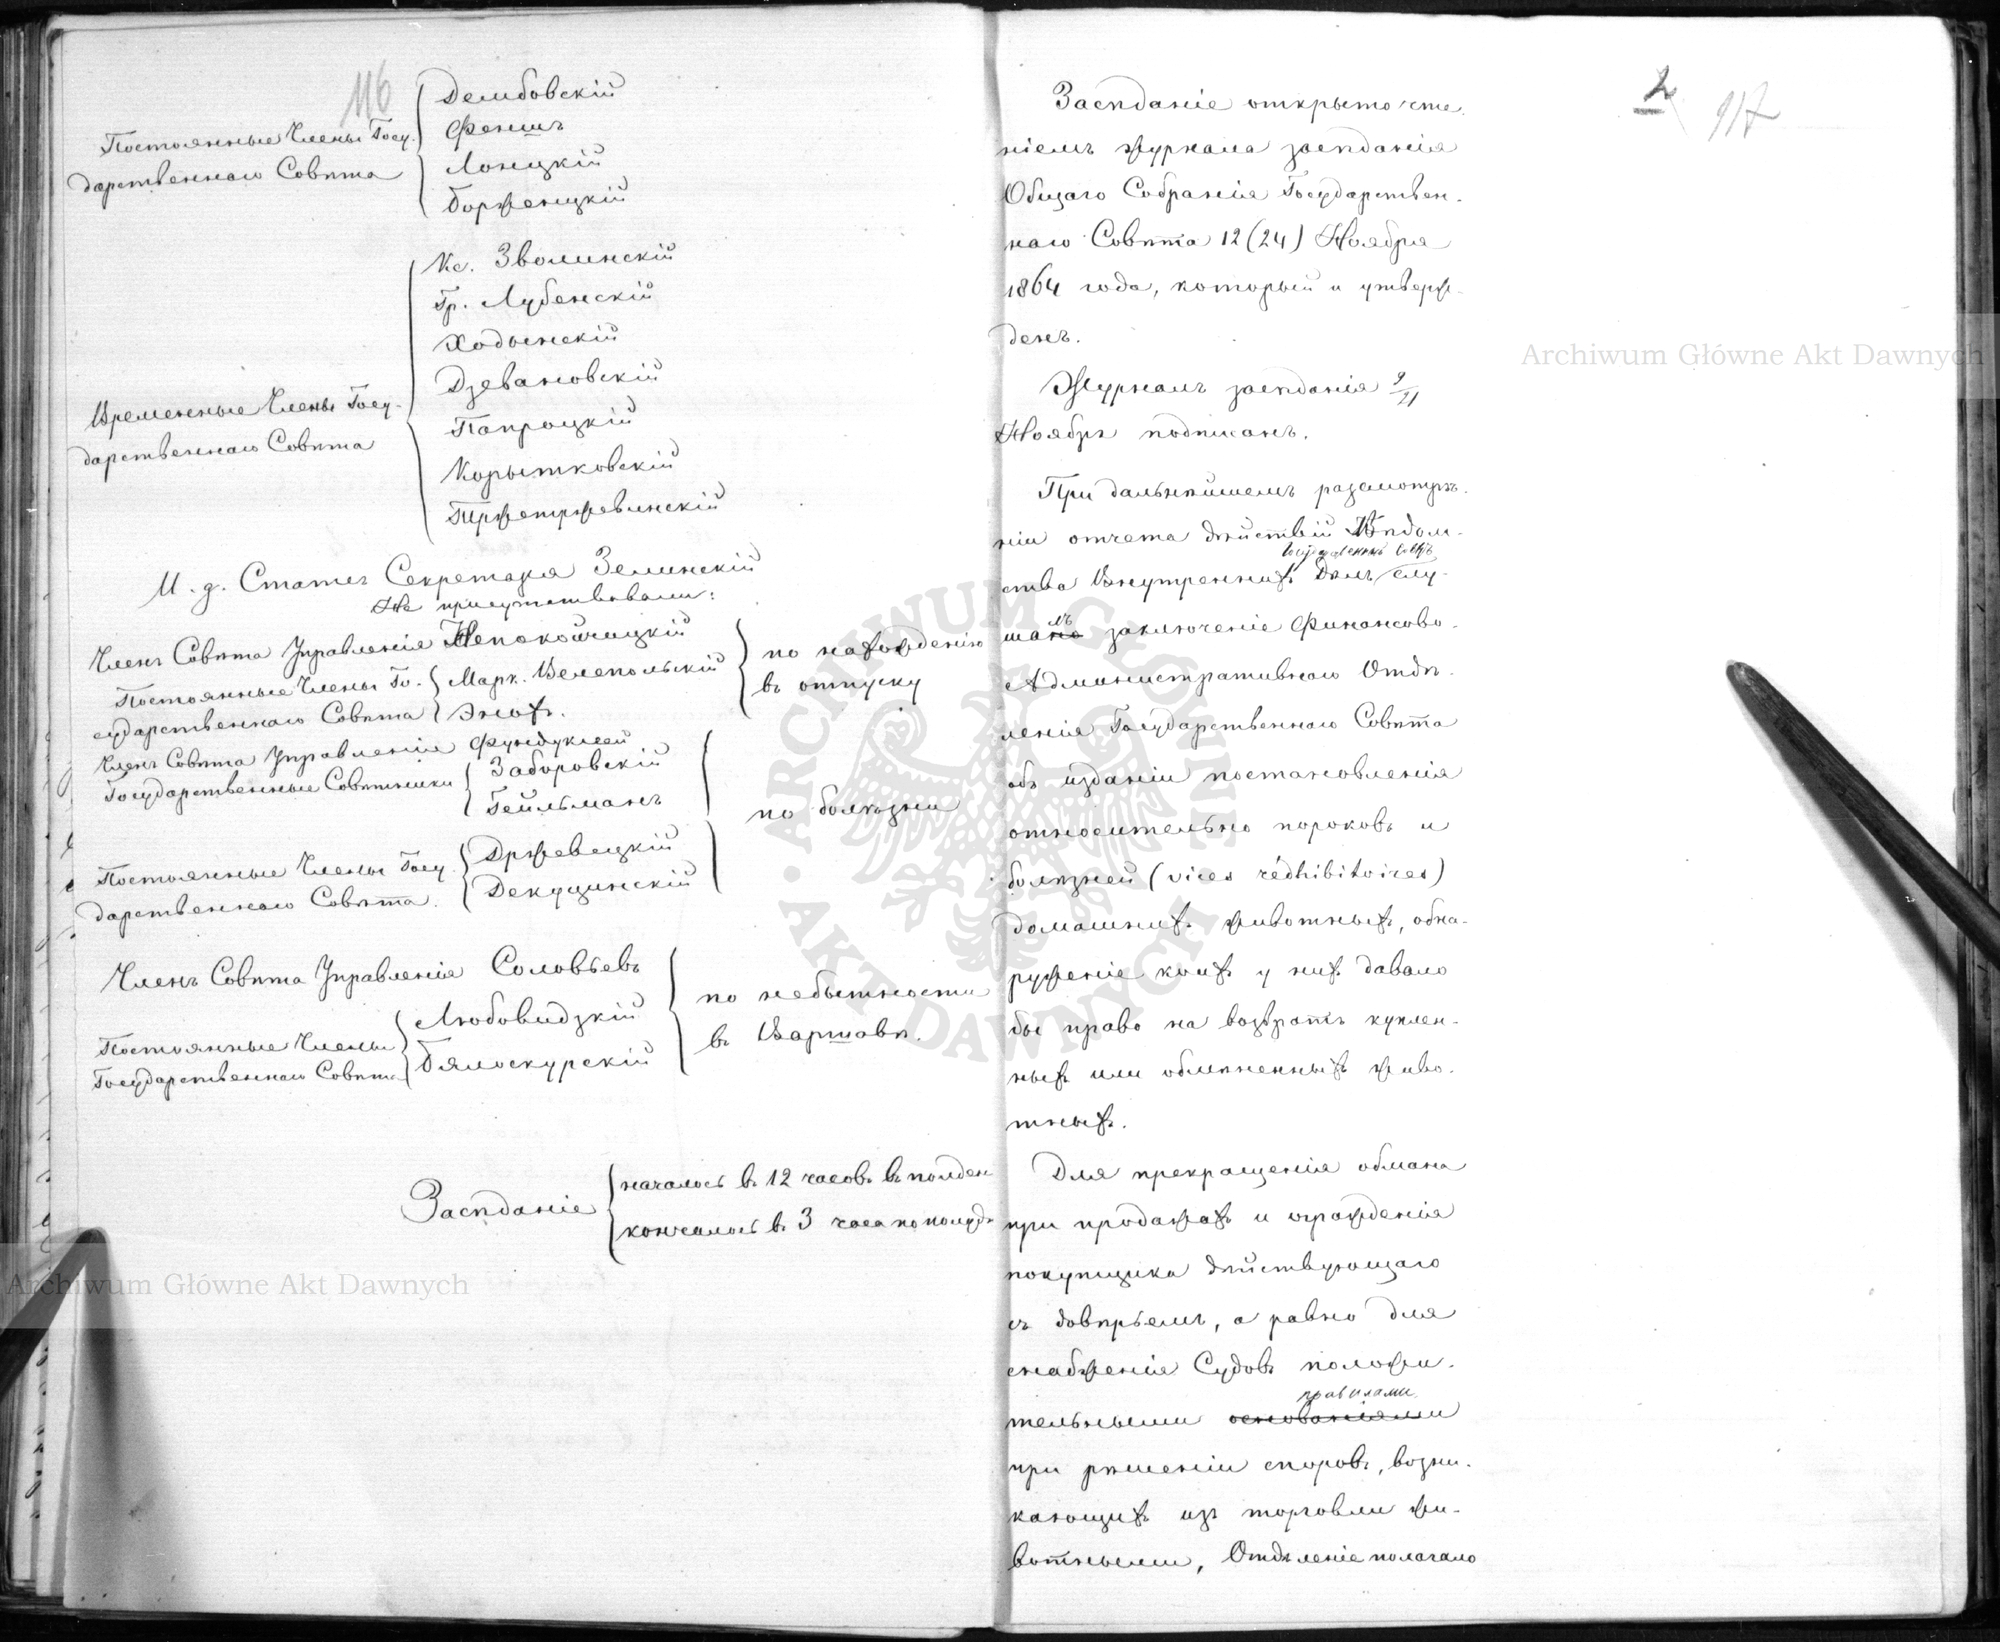 116
Постоянные Члены Госу-
дарственнаго Совѣта
Дембовскій
Феншъ
Лонцкій
Борженцкій
Временные Члены Госу-
дарственнаго Совѣта
Кс. Зволинскій
Гр. Лубенскій
Ходынскій
Дзевановскій
Папроцкій
Корытковскій
Пржетржевинскій
И. д. Статсъ Секретаря Зелинскій
Не присутствовали:
Членъ Совѣта Управленія Непокойчицкій
Постоянные Члены Го-
сударственнаго Совѣта
Марк. Велепольскій
Энохъ.
по нахожденію
въ отпуску
Членъ Совѣта Управленія Фундуклей
Государственные Совѣтники
Заборовскій
Гейльманъ
Постоянные Члены Госу
дарственнаго Совѣта.
Држевецкій
Декуцинскій
по болѣзни
Членъ Совѣта Управленія Соловьевъ
Постоянные Члены
Государственнаго Совѣта
Любовидзкій
Бялоскурскій
по небытности
въ Варшавѣ.
Засѣданіе
началось въ 12 часовъ въ полден
кончилось въ 3 часа по полуд
2
117
Засѣданіе открыто чте-
ніемъ журнала засѣданія
Общаго Собранія Государствен-
наго Совѣта 12 (24) Ноября
1864 года, который и утверж-
денъ.
Журналъ засѣданія 9/21
Ноября подписанъ.
При дальнѣйшемъ разсмотрѣ-
ніи отчета дѣйствій Вѣдом-
Государственный Совѣтъ
ства Внутреннихъ Дѣлъ, слу-
лъ
шано заключеніе Финансово-
Административнаго Отдѣ-
ленія Государственнаго Совѣта
объ изданіи постановленія
относительно пороковъ и
болѣзней (vices rédhibitoires)
домашнихъ животныхъ, обна-
руженіе коихъ у нихъ давало
бы право на возвратъ куплен-
ныхъ или обмѣненныхъ живо-
тныхъ.
Для прекращенія обмана
при продажахъ и огражденія
покупщика дѣйствующаго
съ довѣріемъ, а равно для
снабженія Судовъ положи-
правилами
тельными основаніями
при рѣшеніи споровъ, возни-
кающихъ изъ торговли жи-
вотными, Отдѣленіе полагало
Archiwum Główne Akt Dawnych
Archiwum Główne Akt Dawnych
ARCHIWUM GŁÓWNE
AKT DAWNYCH